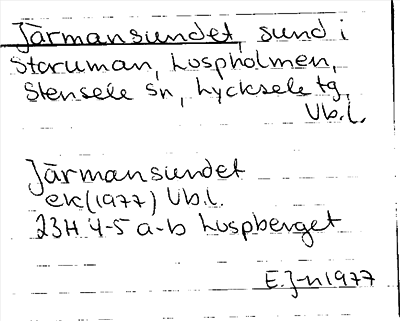 Järmansundet, sund i
Storuman, Luspholmen,
Stensele sn, Lycksele tg,
Vb.l.
Järmansundet
ek(1977) Vb.l.
23H 4-5 a-b Luspberget
E.J-n 1977